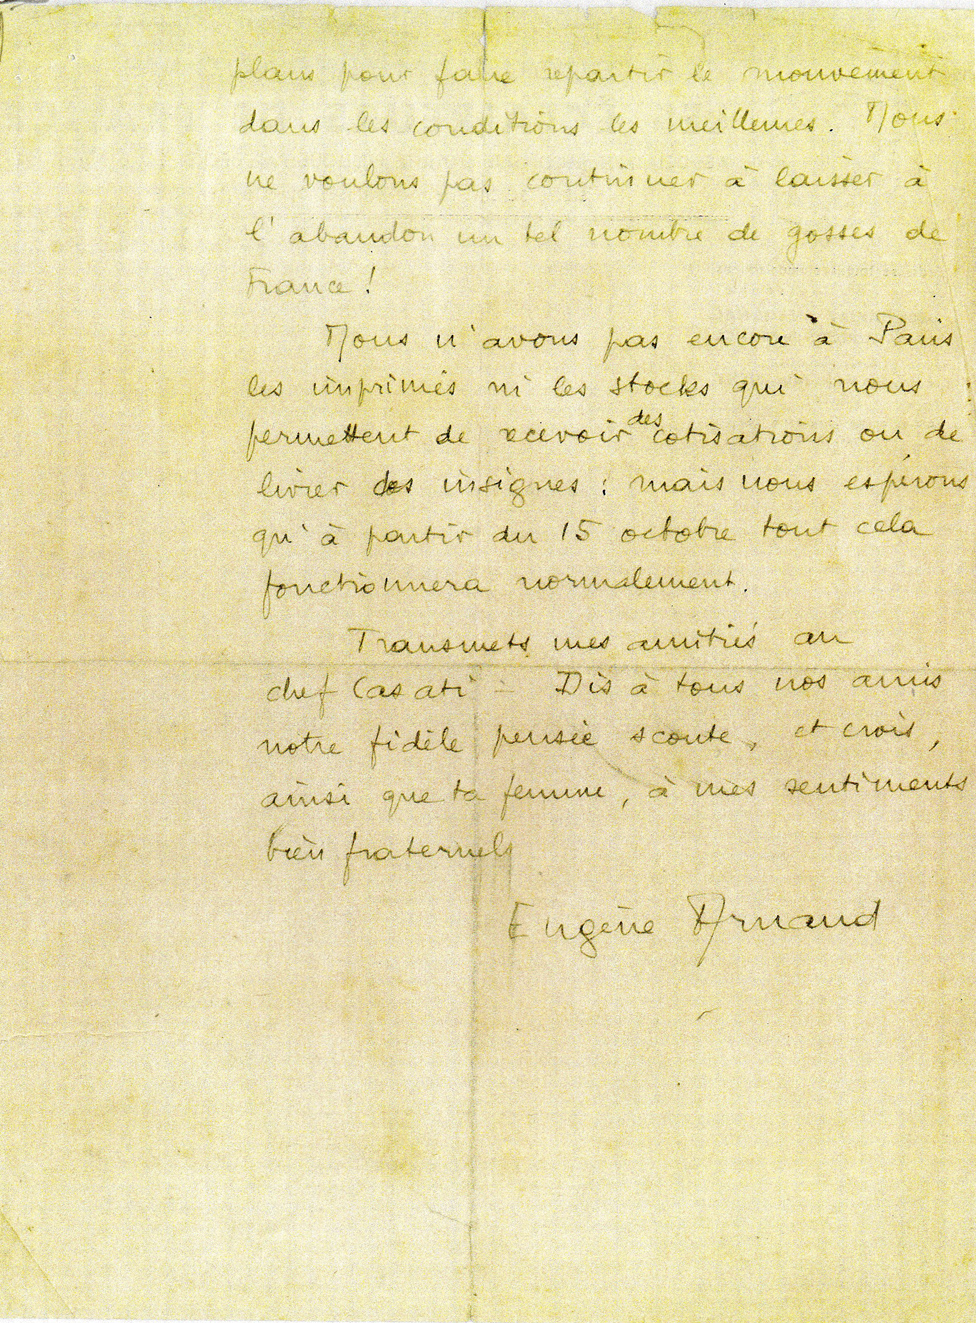 plans pour faire repartir le mouvement
dans les conditions les meilleures. Nous
ne voulons pas continuer à laisser à
l'abandon un tel nombre de gosses de
France !
Nous n'avons pas encore à Paris
les imprimés ni les stocks qui nous
permettent de recevoir des cotisations ou de
livrer des insignes : mais nous espérons
qu'à partir du 15 octobre tout cela
fonctionnera normalement.
Transmets mes amitiés au
chef Casati - Dis à tous nos amis
notre fidèle pensée scoute, et crois,
ainsi que ta femme, à mes sentiments
bien fraternels
Eugène Arnaud